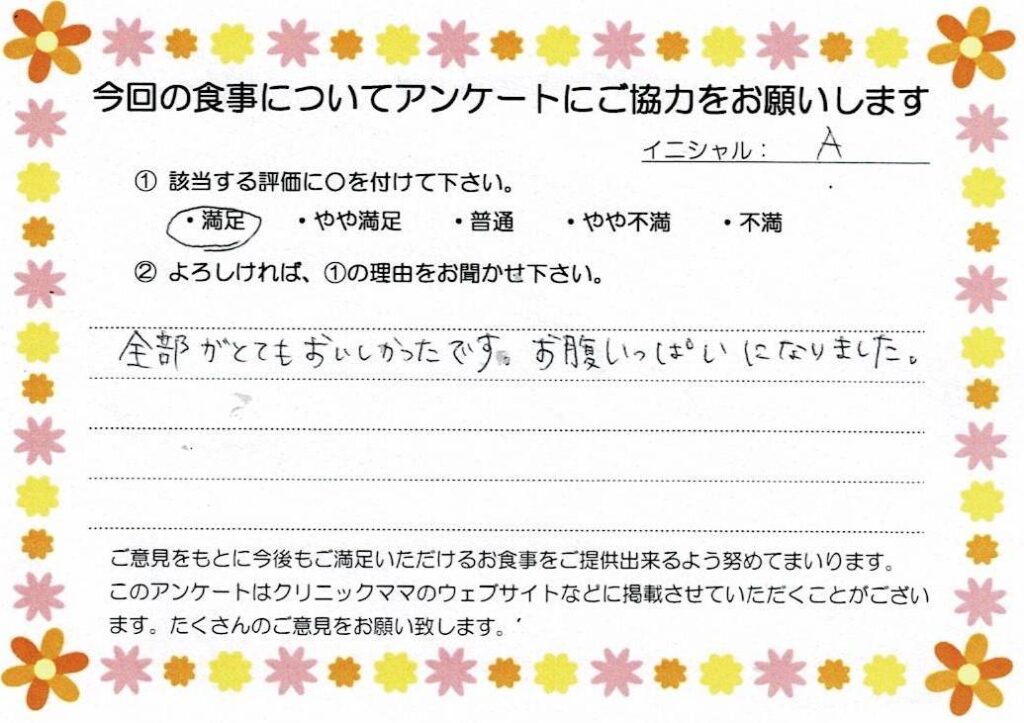 今回の食事についてアンケートにご協力をお願いします
イニシャル： A
① 該当する評価に〇を付けて下さい。
・満足 ・やや満足 ・普通 ・やや不満 ・不満
② よろしければ、①の理由をお聞かせ下さい。
全部がとてもおいしかったです。お腹いっぱいになりました。
ご意見をもとに今後もご満足いただけるお食事をご提供出来るよう努めてまいります。
このアンケートはクリニックママのウェブサイトなどに掲載させていただくことがござい
ます。たくさんのご意見をお願い致します。